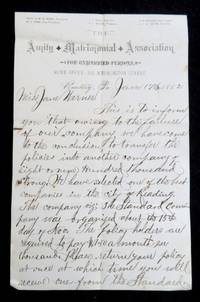 THE
Amity Matrimonial Association
FOR UNMARRIED PERSONS,
HOME OFFICE, WASHINGTON STREET
Reading, Pa. June 1882
Miss Jane Warner
This is to inform
you that owing to the failure
of our company we have come
to the conclusion to transfer the
policies into another company of
Eight or nine Hundred thousand
strong. We have selected one of the best
companies in the City of Reading.
The company is The Standard. Com-
pany was organized about the 15th
day of Nov. The policy holders are
required to pay a month per
thousand. Please return your policy
at once at which time you will
receive one from the Standard.